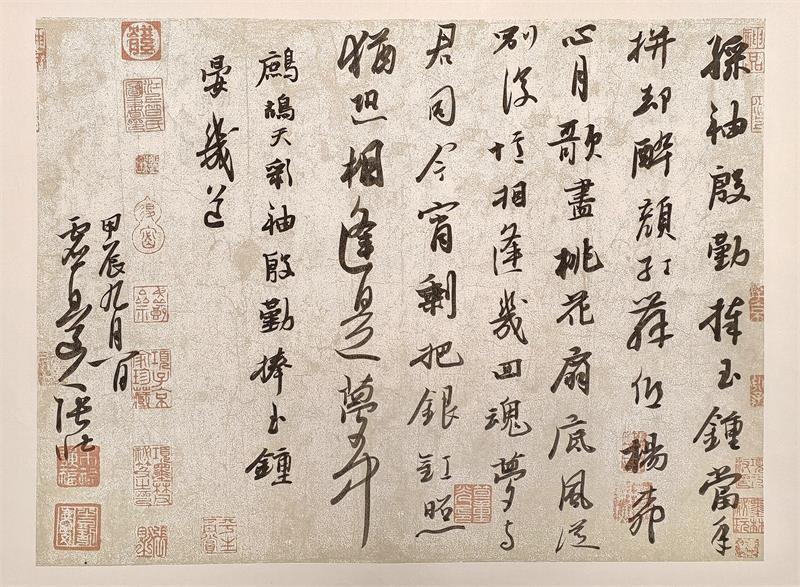 綵袖殷勤捧玉鍾當年
拼却醉顔紅舞低楊柳
心月歌盡桃花扇底風從
別後憶相逢幾回魂夢与
君同今宵剩把銀釭照
猶恐相逢是夢中
鷓鴣天彩袖殷勤捧玉鍾
晏幾道
甲辰九月一日
道人張